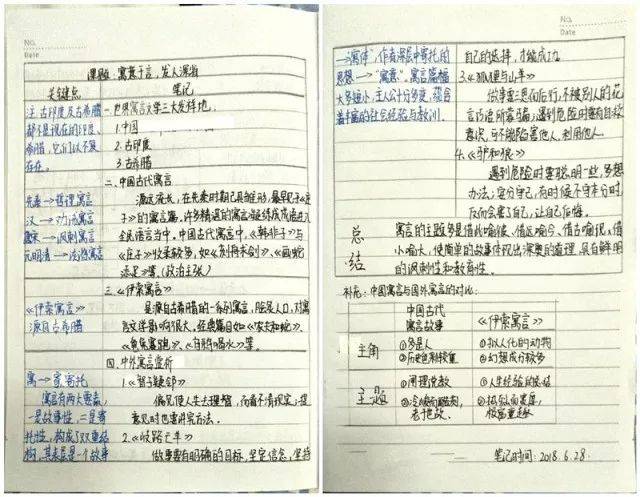 No.
Date
课题：寓意于言，发人深省
关键点
笔记
注：古印度及古希腊
都不是现在的印度、
希腊，它们已不复
存在。
先秦→哲理寓言
汉→劝诫寓言
唐宋→讽刺寓言
元明清→诙谐寓言
《伊索寓言》
源自古希腊
寓→寄托
寓言有两大要素，
一是故事性，二是寄
托性，构成了双重结
构，其表层是一个故事
一.世界寓言文学三大发祥地。
1.中国
2.古印度
3.古希腊
二.中国古代寓言
源远流长，在先秦时期已具雏形，最早见于《庄
子》的寓言篇，许多精选的寓言凝练成成语进入
全民语言当中。中国古代寓言中，《韩非子》与
《庄子》收录较多，如《刻舟求剑》、《画蛇
添足》等。(政治主张)
三.《伊索寓言》
是源自古希腊的一系列寓言，脍炙人口，对寓
言文学影响很大，经典篇目如《农夫和蛇》、
《龟兔赛跑》、《乌鸦喝水》等。
四.中外寓言赏析
1.《智子疑邻》
偏见使人失去理智，而看不清现实；提
意见时也要讲究方法。
2.《歧路亡羊》
做事要有明确的目标，坚定信念，坚持
No.
Date
→"寓体"，作者深层中寄托的
思想→"寓意"。寓言篇幅
大多短小，主人公十分多变，蕴含
着丰富的社会经验与教训。
自己的选择，才能成功。
3.《狐狸与山羊》
做事要三思而后行，不被别人的花
言巧语所蒙骗；遇到危险时要有自救
意识，可不能陷害他人，利用他人。
4.《驴和狼》
遇到危险时要聪明一些，多想
办法；安分守己，有时候不守本分时，
反而会害了自己，让自己后悔。
总结
寓言的主题多是借此喻彼、借远喻今、借古喻现、借
小喻大，使简单的故事体现出深奥的道理，具有鲜明
的讽刺性和教育性。
补充：中国寓言与国外寓言的对比：
中国古代
寓言故事
《伊索寓言》
主角
①多是人
②历史色彩较重
①拟人化的动物
②幻想成分较多
主题
①用理说教
老于世故。
①人生经验的总结
笔记时间：2018.6.28.